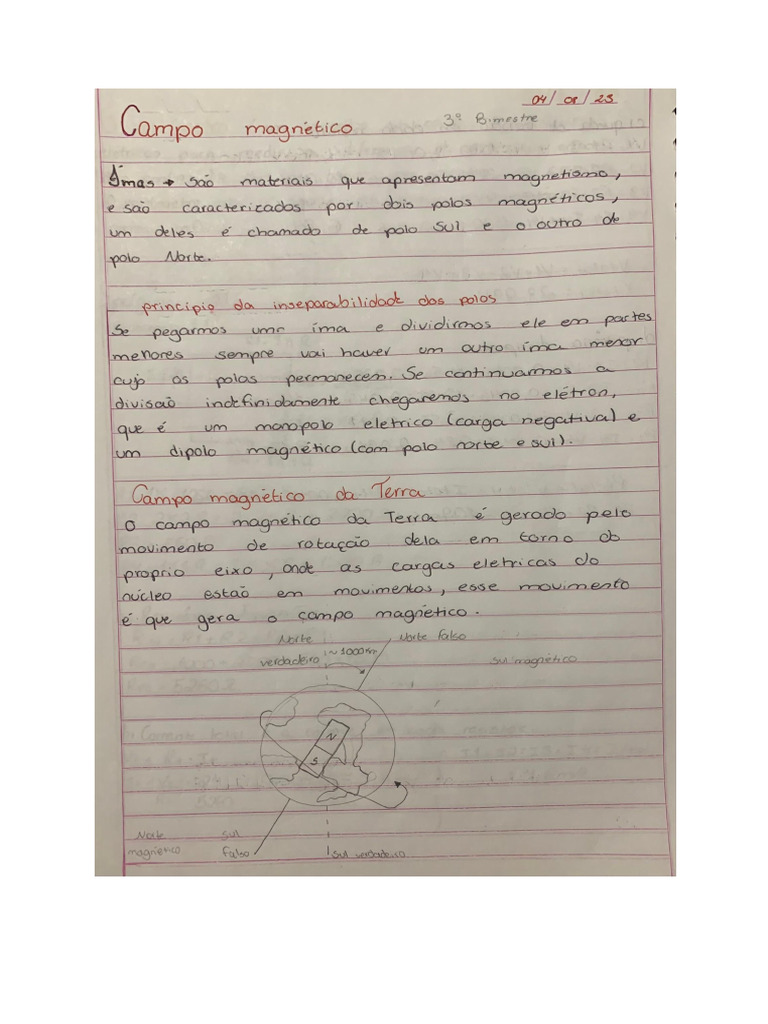 04/08/23
Campo magnético 3º Bimestre
Ímas → são materiais que apresentam magnetismo,
e são caracterizados por dois polos magnéticos,
um deles é chamado de polo Sul e o outro de
polo Norte.
principio da inseparabilidade dos polos
Se pegarmos uma íma e dividirmos ele em partes
menores sempre vai haver um outro íma menor
cujo os polos permanecem. Se continuarmos a
divisão indefinidamente chegaremos no elétron,
que é um monopolo eletrico (carga negativa) e
um dipolo magnético (com polo norte e sul).
Campo magnético da Terra
O campo magnético da Terra é gerado pelo
movimento de rotação dela em torno do
proprio eixo, onde as cargas eletricas do
núcleo estão em movimentos, esse movimento
é que gera o campo magnético.
Norte Norte falso
verdadeiro ~1000km sul magnético
N
S
Norte sul
magnético falso sul verdadeiro